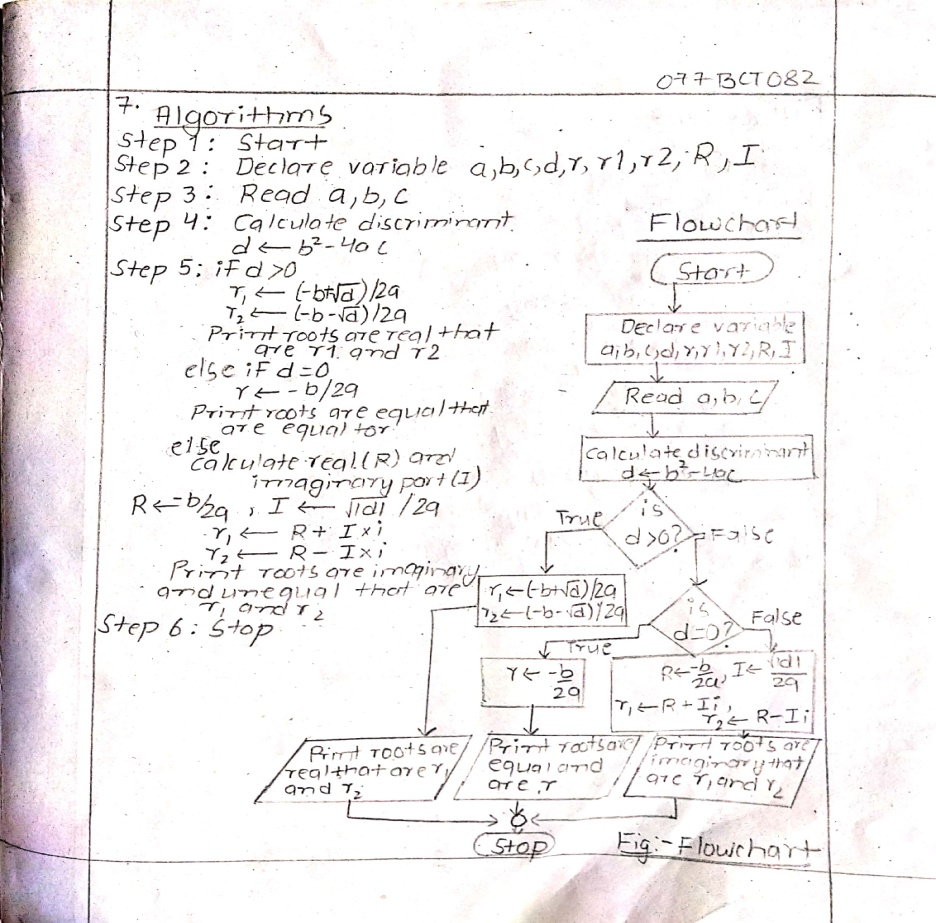 077BCT082
7. Algorithms
Step 1: Start
Step 2: Declare variable a,b,c,d,r,r1,r2,R,I
Step 3: Read a,b,c
Step 4: Calculate discriminant.
d ← b²-4ac
Step 5: if d>0
r₁ ← (-b+√d)/2a
r₂ ← (-b-√d)/2a
Print roots are real that
are r1 and r2
else if d=0
r ← -b/2a
Print roots are equal that
are equal to r
else
calculate real(R) and
imaginary part(I)
R←-b/2a, I ← √|d| /2a
r₁ ← R+I×i
r₂ ← R-I×i
Print roots are imaginary
and unequal that are
r₁ and r₂
Step 6: Stop
Flowchart
Start
Declare variable
a,b,c,d,r,r1,r2,R,I
Read a,b,c
Calculate discriminant
d←b²-4ac
is
d>0?
True
False
r₁←(-b+√d)/2a
r₂←(-b-√d)/2a
is
d=0?
False
True
r←-b
2a
R←-b/2a, I←√|d|/2a
r₁←R+Ii,
r₂←R-Ii
Print roots are
real that are r₁
and r₂
Print roots are
equal and
are r
Print roots are
imaginary that
are r₁ and r₂
Stop
Fig:-Flowchart